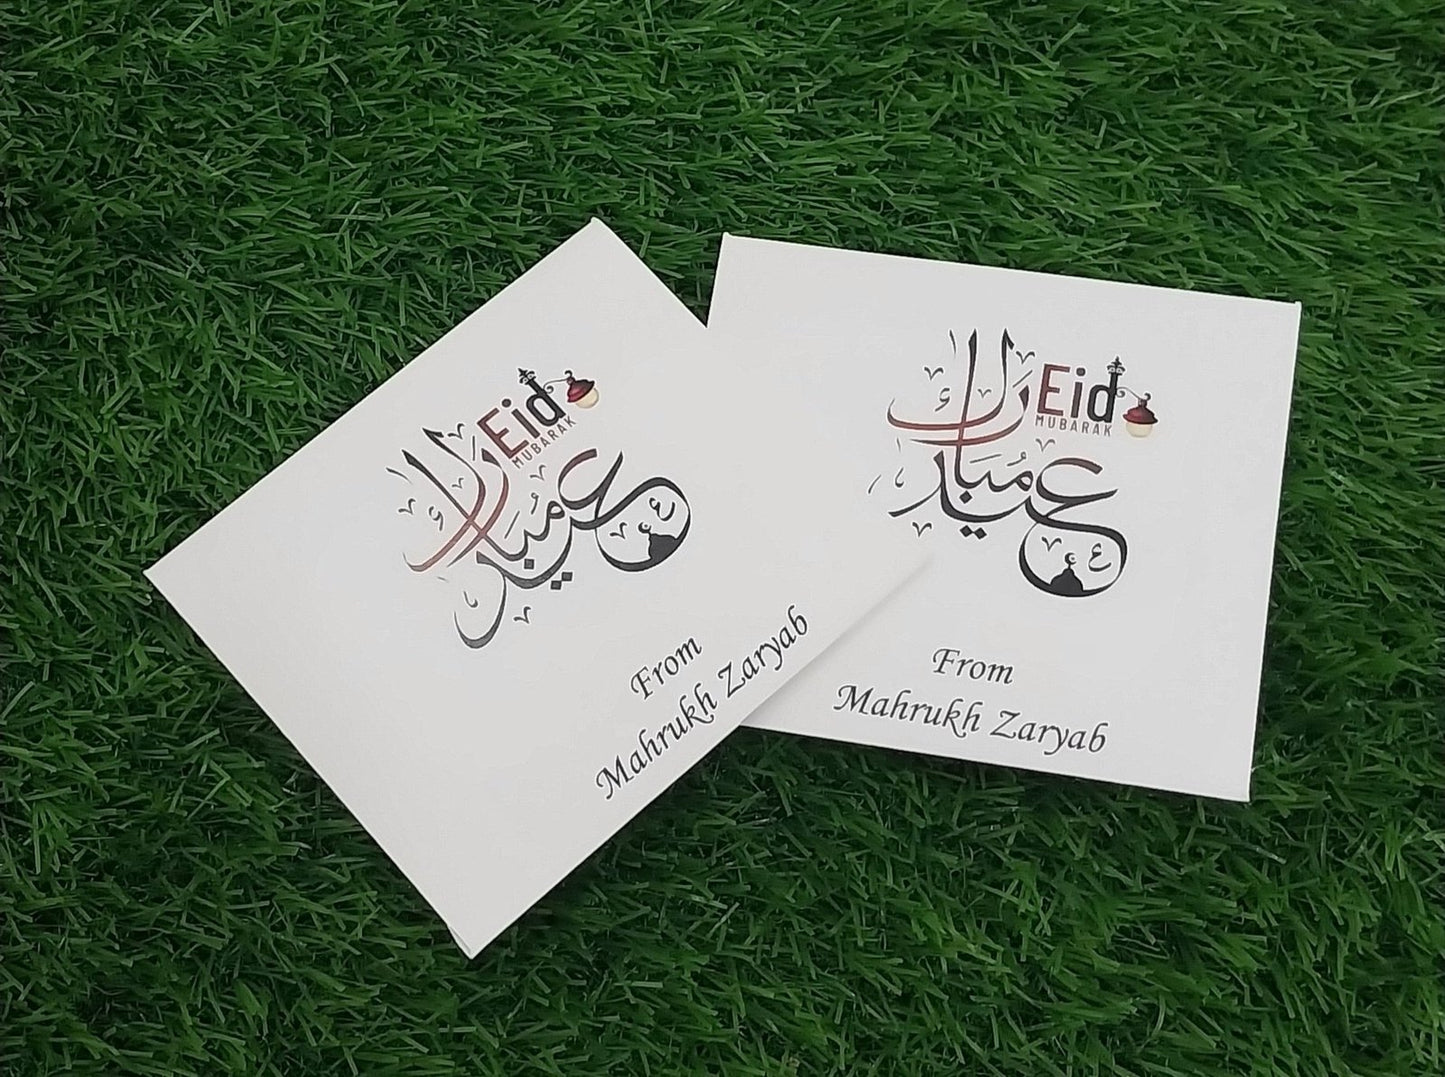 Eid
MUBARAK
عيد مبارك
From
Mahrukh Zaryab
Eid
MUBARAK
عيد مبارك
From
Mahrukh Zaryab